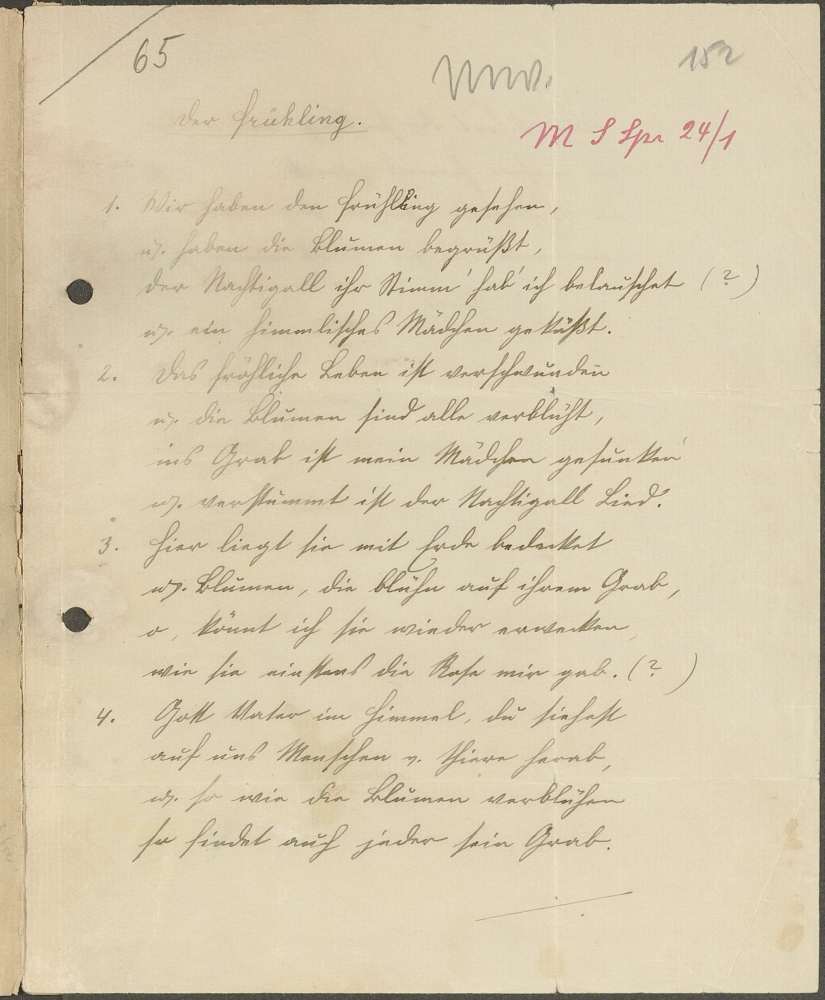 65
152
M S Spr 24/1
Der Frühling.
1. Wir haben den Frühling gesehen,
u. haben die Blumen begrüßt,
der Nachtigall ihr Stimm' hab' ich belauschet (?)
u. ein himmlisches Mädchen geküßt.
2. Das fröhliche Leben ist verschwunden
u. die Blumen sind alle verblüht,
ins Grab ist mein Mädchen gesunken
u. verstummt ist der Nachtigall Lied.
3. Hier liegt sie mit Erde bedecket
u. Blumen, die blühn auf ihrem Grab,
o, könnt ich sie wieder erwecken,
wie sie einstens die Rose mir gab. (?)
4. Gott Vater im Himmel, du siehest
auf uns Menschen u. Thiere herab,
u. so wie die Blumen verblühen
so findet auch jeder sein Grab.